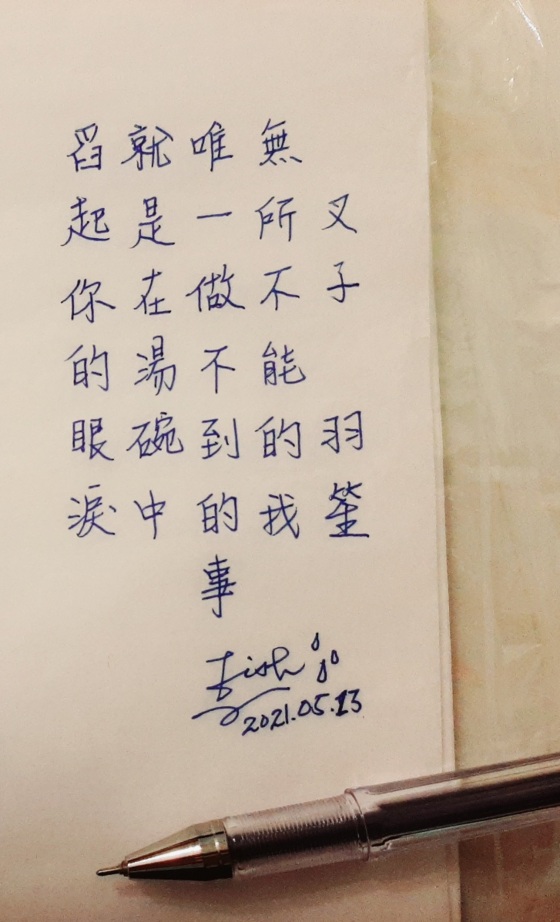 叉子 羽笙
無所不能的我
唯一做不到的事
就是在湯碗中
舀起你的眼淚
Fish
2021.05.13